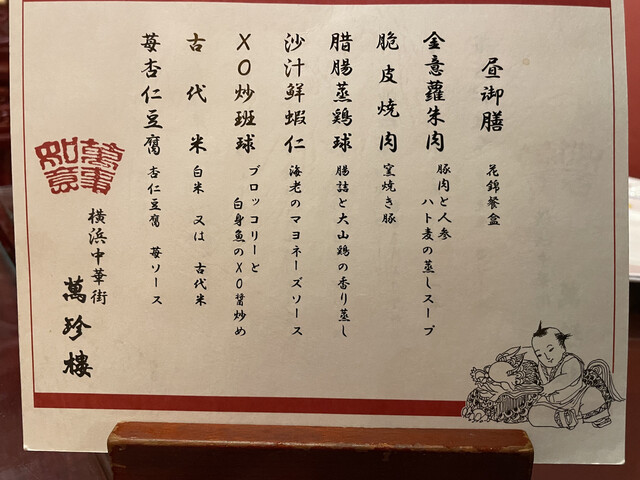 昼御膳
花錦餐盒
金意蘿朱肉
豚肉と人参
ハト麦の蒸しスープ
脆皮焼肉
窯焼き豚
腊腸蒸鶏球
腸詰と大山鶏の香り蒸し
沙汁鮮蝦仁
海老のマヨネーズソース
XO炒班球
ブロッコリーと
白身魚のXO醤炒め
古代米
白米 又は 古代米
苺杏仁豆腐
杏仁豆腐 苺ソース
萬事
如意
横浜中華街
萬珍樓